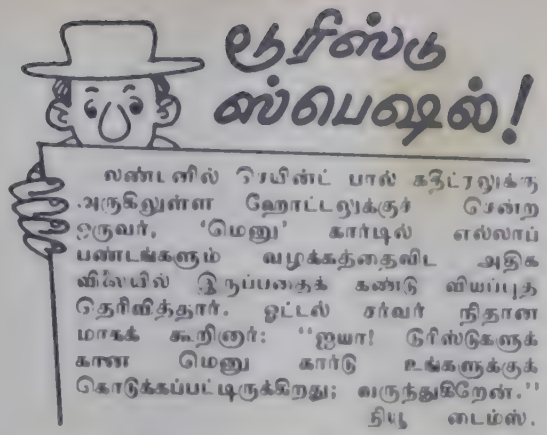 டூரிஸ்டு
ஸ்பெஷல்!
லண்டனில் செயின்ட் பால் கதீட்ரலுக்கு
அருகிலுள்ள ஹோட்டலுக்குச் சென்ற
ஒருவர், 'மெனு' கார்டில் எல்லாப்
பண்டங்களும் வழக்கத்தைவிட அதிக
விலையில் இருப்பதைக் கண்டு வியப்புத்
தெரிவித்தார். ஓட்டல் சர்வர் நிதான
மாகக் கூறினார்: "ஐயா! டூரிஸ்டுகளுக்
கான மெனு கார்டு உங்களுக்குக்
கொடுக்கப்பட்டிருக்கிறது; வருந்துகிறேன்."
நியூ டைம்ஸ்.